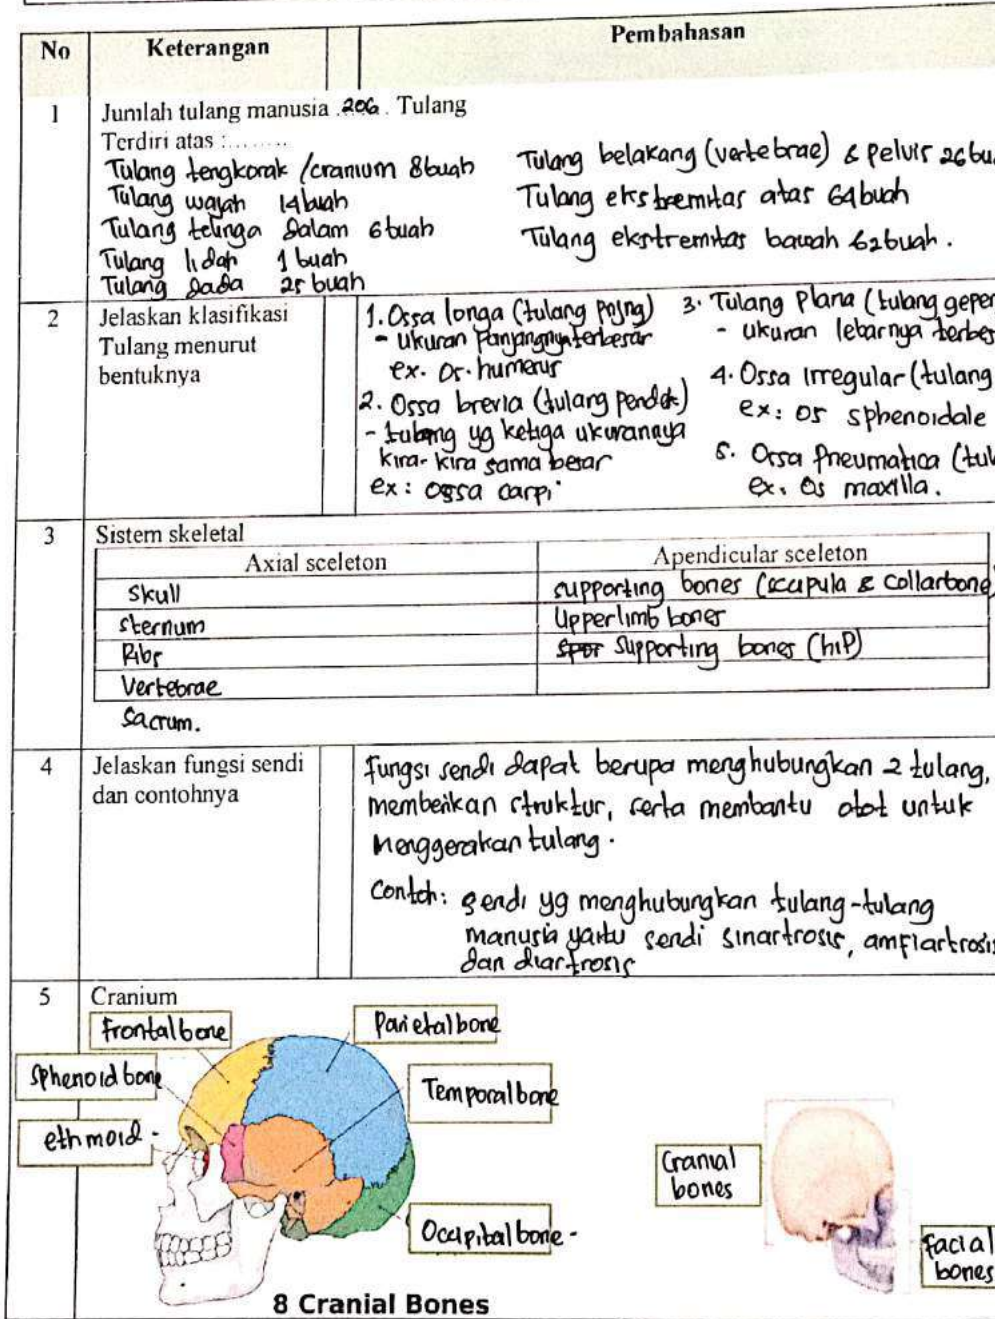 No Keterangan Pembahasan
1 Jumlah tulang manusia .206. Tulang
Terdiri atas :........
Tulang tengkorak /cranium 8 buah
Tulang wajah 14 buah
Tulang telinga dalam 6 buah
Tulang lidah 1 buah
Tulang dada 25 buah
Tulang belakang (vertebrae) & pelvis 26 bu
Tulang ekstremitas atas 64 buah
Tulang ekstremitas bawah 62 buah.
2 Jelaskan klasifikasi
Tulang menurut
bentuknya
1. Ossa longa (tulang pnjng)
- ukuran panjangnya terbesar
ex. Os. humerus
2. Ossa brevia (tulang pendek)
- tulang yg ketiga ukurannya
kira-kira sama besar
ex : ossa carpi
3. Tulang Plana (tulang gepen
- ukuran lebarnya terbes
4. Ossa Irregular (tulang
ex: os sphenoidale
5. Ossa Pneumatica (tul
ex. Os maxilla.
3 Sistem skeletal
Axial sceleton Apendicular sceleton
Skull supporting bones (scapula & collarbone)
sternum Upperlimb bones
Ribs Supporting bones (hip)
Vertebrae
Sacrum.
4 Jelaskan fungsi sendi
dan contohnya
fungsi sendi dapat berupa menghubungkan 2 tulang,
memberikan struktur, serta membantu otot untuk
menggerakan tulang.
Contoh: sendi yg menghubungkan tulang-tulang
manusia yaitu sendi sinartrosis, amfiartrosis
dan diartrosis
5 Cranium
Frontal bone
Parietal bone
Sphenoid bone
Temporal bone
ethmoid -
Cranial
bones
Occipital bone -
Facial
bones
8 Cranial Bones